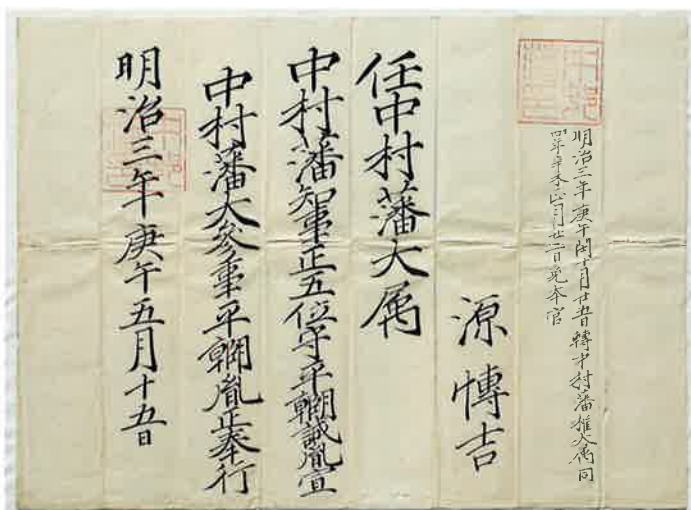 明治三年庚午閏十月廿五日轉中村藩権大属同
四年辛未正月廿二日免本官
源愽吉
任中村藩大属
中村藩知事正五位守平朝臣誠胤宣
中村藩大参事平朝臣胤正奉行
明治三年庚午五月十五日